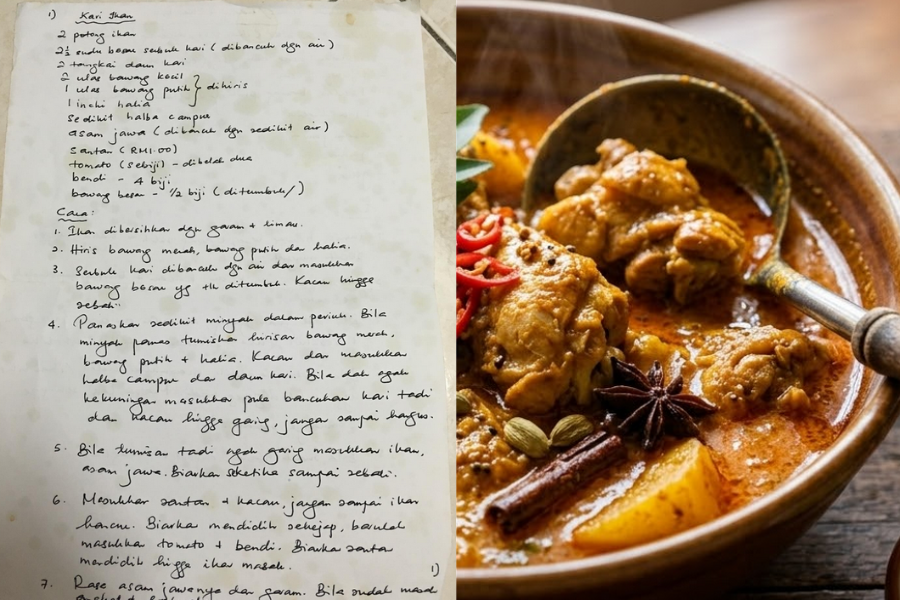 1) Kari Ikan
2 potong ikan
2½ sudu besar serbuk kari (dibancuh dgn air)
2 tangkai daun kari
2 ulas bawang kecil
1 ulas bawang putih } dihiris
1 inchi halia
sedikit halba campur
asam jawa (dibancuh dgn sedikit air)
santan (RM1.00)
tomato (sebiji) - dibelah dua
bendi - 4 biji
bawang besar - ½ biji (ditumbuk/)
Cara:
1. Ikan dibersihkan dgn garam + limau.
2. Hiris bawang merah, bawang putih dan halia.
3. Serbuk kari dibancuh dgn air dan masukkan
bawang besar yg tlh ditumbuk. Kacau hingga
sebati.
4. Panaskan sedikit minyak dalam periuk. Bila
minyak panas tumiskan hirisan bawang merah,
bawang putih + halia. Kacau dan masukkan
halba campur dan daun kari. Bila dah agak
kekuningan masukkan pula bancuhan kari tadi
dan kacau hingga garing, jangan sampai hangus.
5. Bila tumisan tadi agak garing masukkan ikan,
asam jawa. Biarkan seketika sampai sebati.
6. Masukkan santan + kacau, jangan sampai ikan
hancur. Biarkan mendidih sekejap, barulah
masukkan tomato + bendi. Biarkan santan
mendidih hingga ikan masak.
1)
7. Rasa asam jawanya dan garam. Bila sudah masak